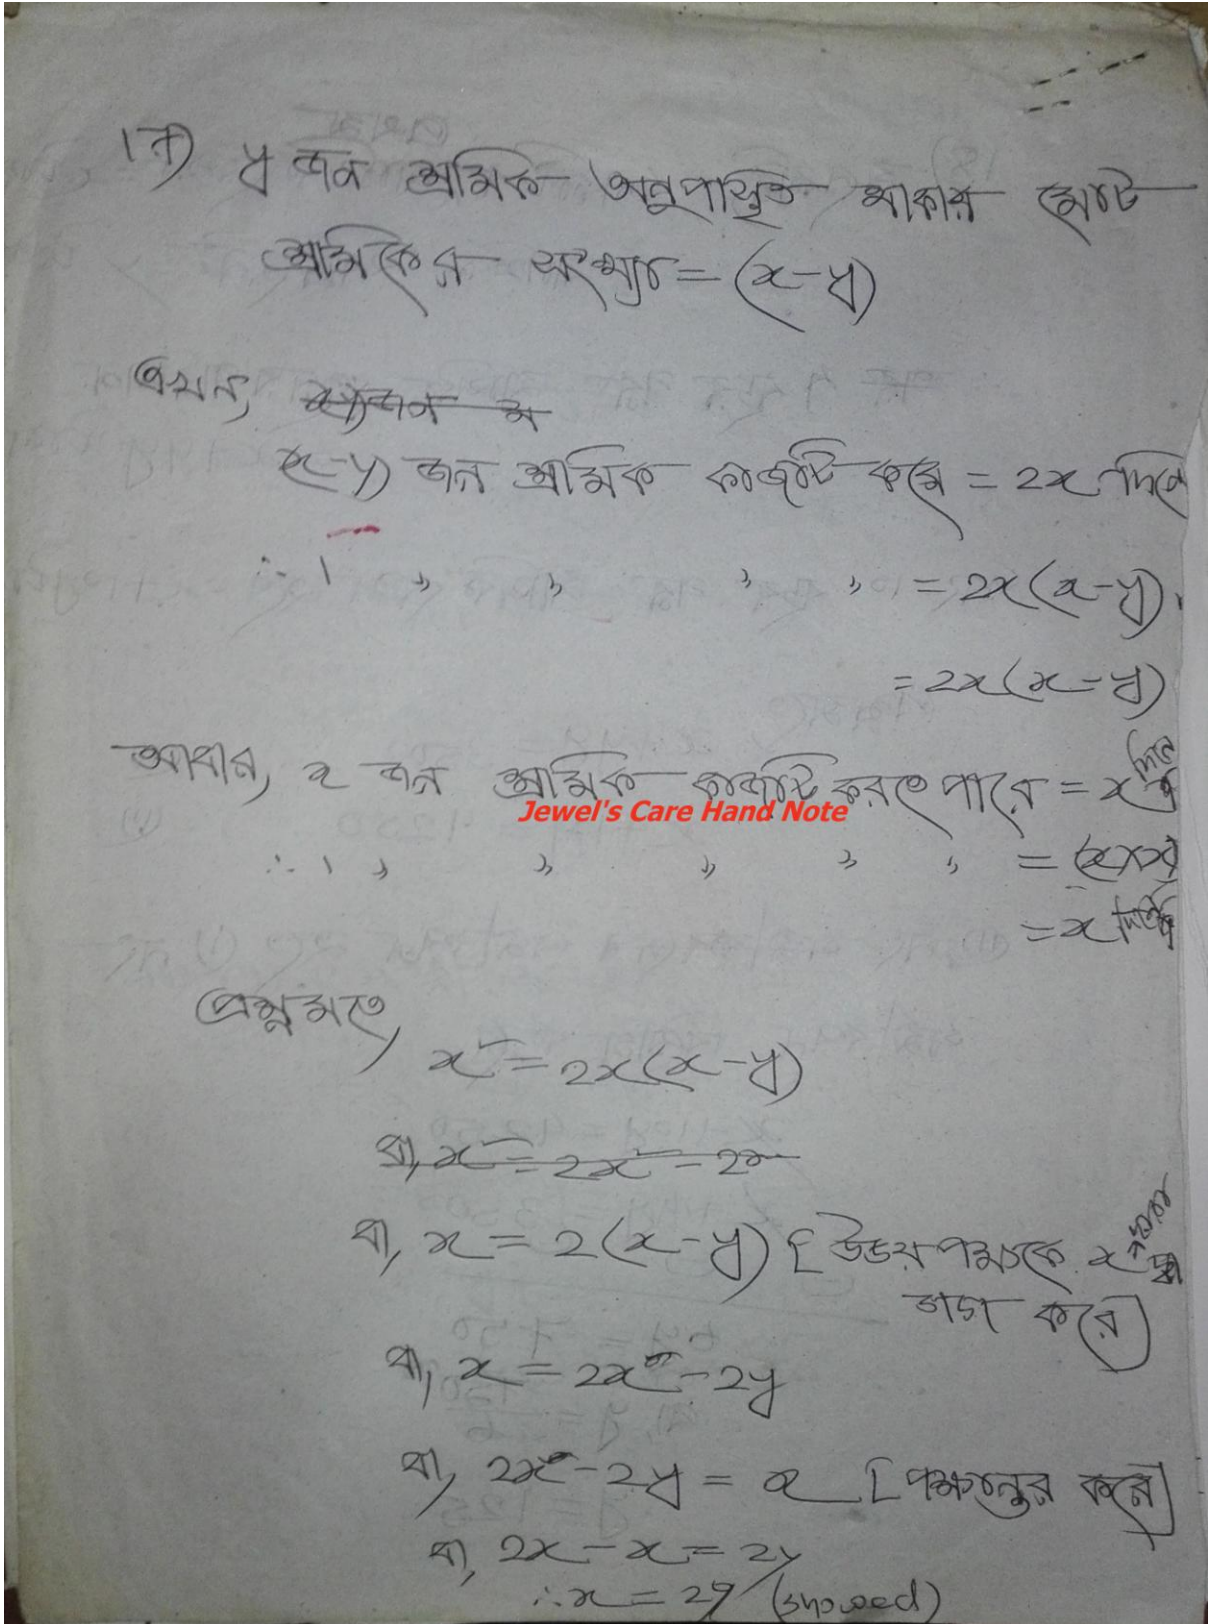 ১৭) y জন শ্রমিক অনুপস্থিত থাকার মোট
শ্রমিকের সংখ্যা = (x-y)
এখন,
x-y) জন শ্রমিক কাজটি করে = 2x দিনে
∴ ১ " " " " = 2x(x-y).
= 2x(x-y)
আবার, x জন শ্রমিক কাজটি করতে পারে = x দিনে
Jewel's Care Hand Note
∴ ১ " " " " " = (x×x)
= x² দিনে
প্রশ্নমতে,
x² = 2x(x-y)
বা, x² = 2x² - 2x
বা, x = 2(x-y) [উভয়পক্ষকে x দ্বারা
ভাগ করে]
বা, x = 2x - 2y
বা, 2x - 2y = x [পক্ষান্তর করে]
বা, 2x - x = 2y
∴ x = 2y (showed)